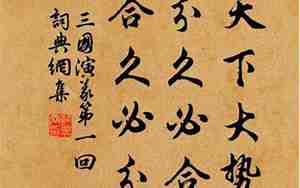 天下大勢
分久必合
合久必分
三國演義第一回
詞典網集